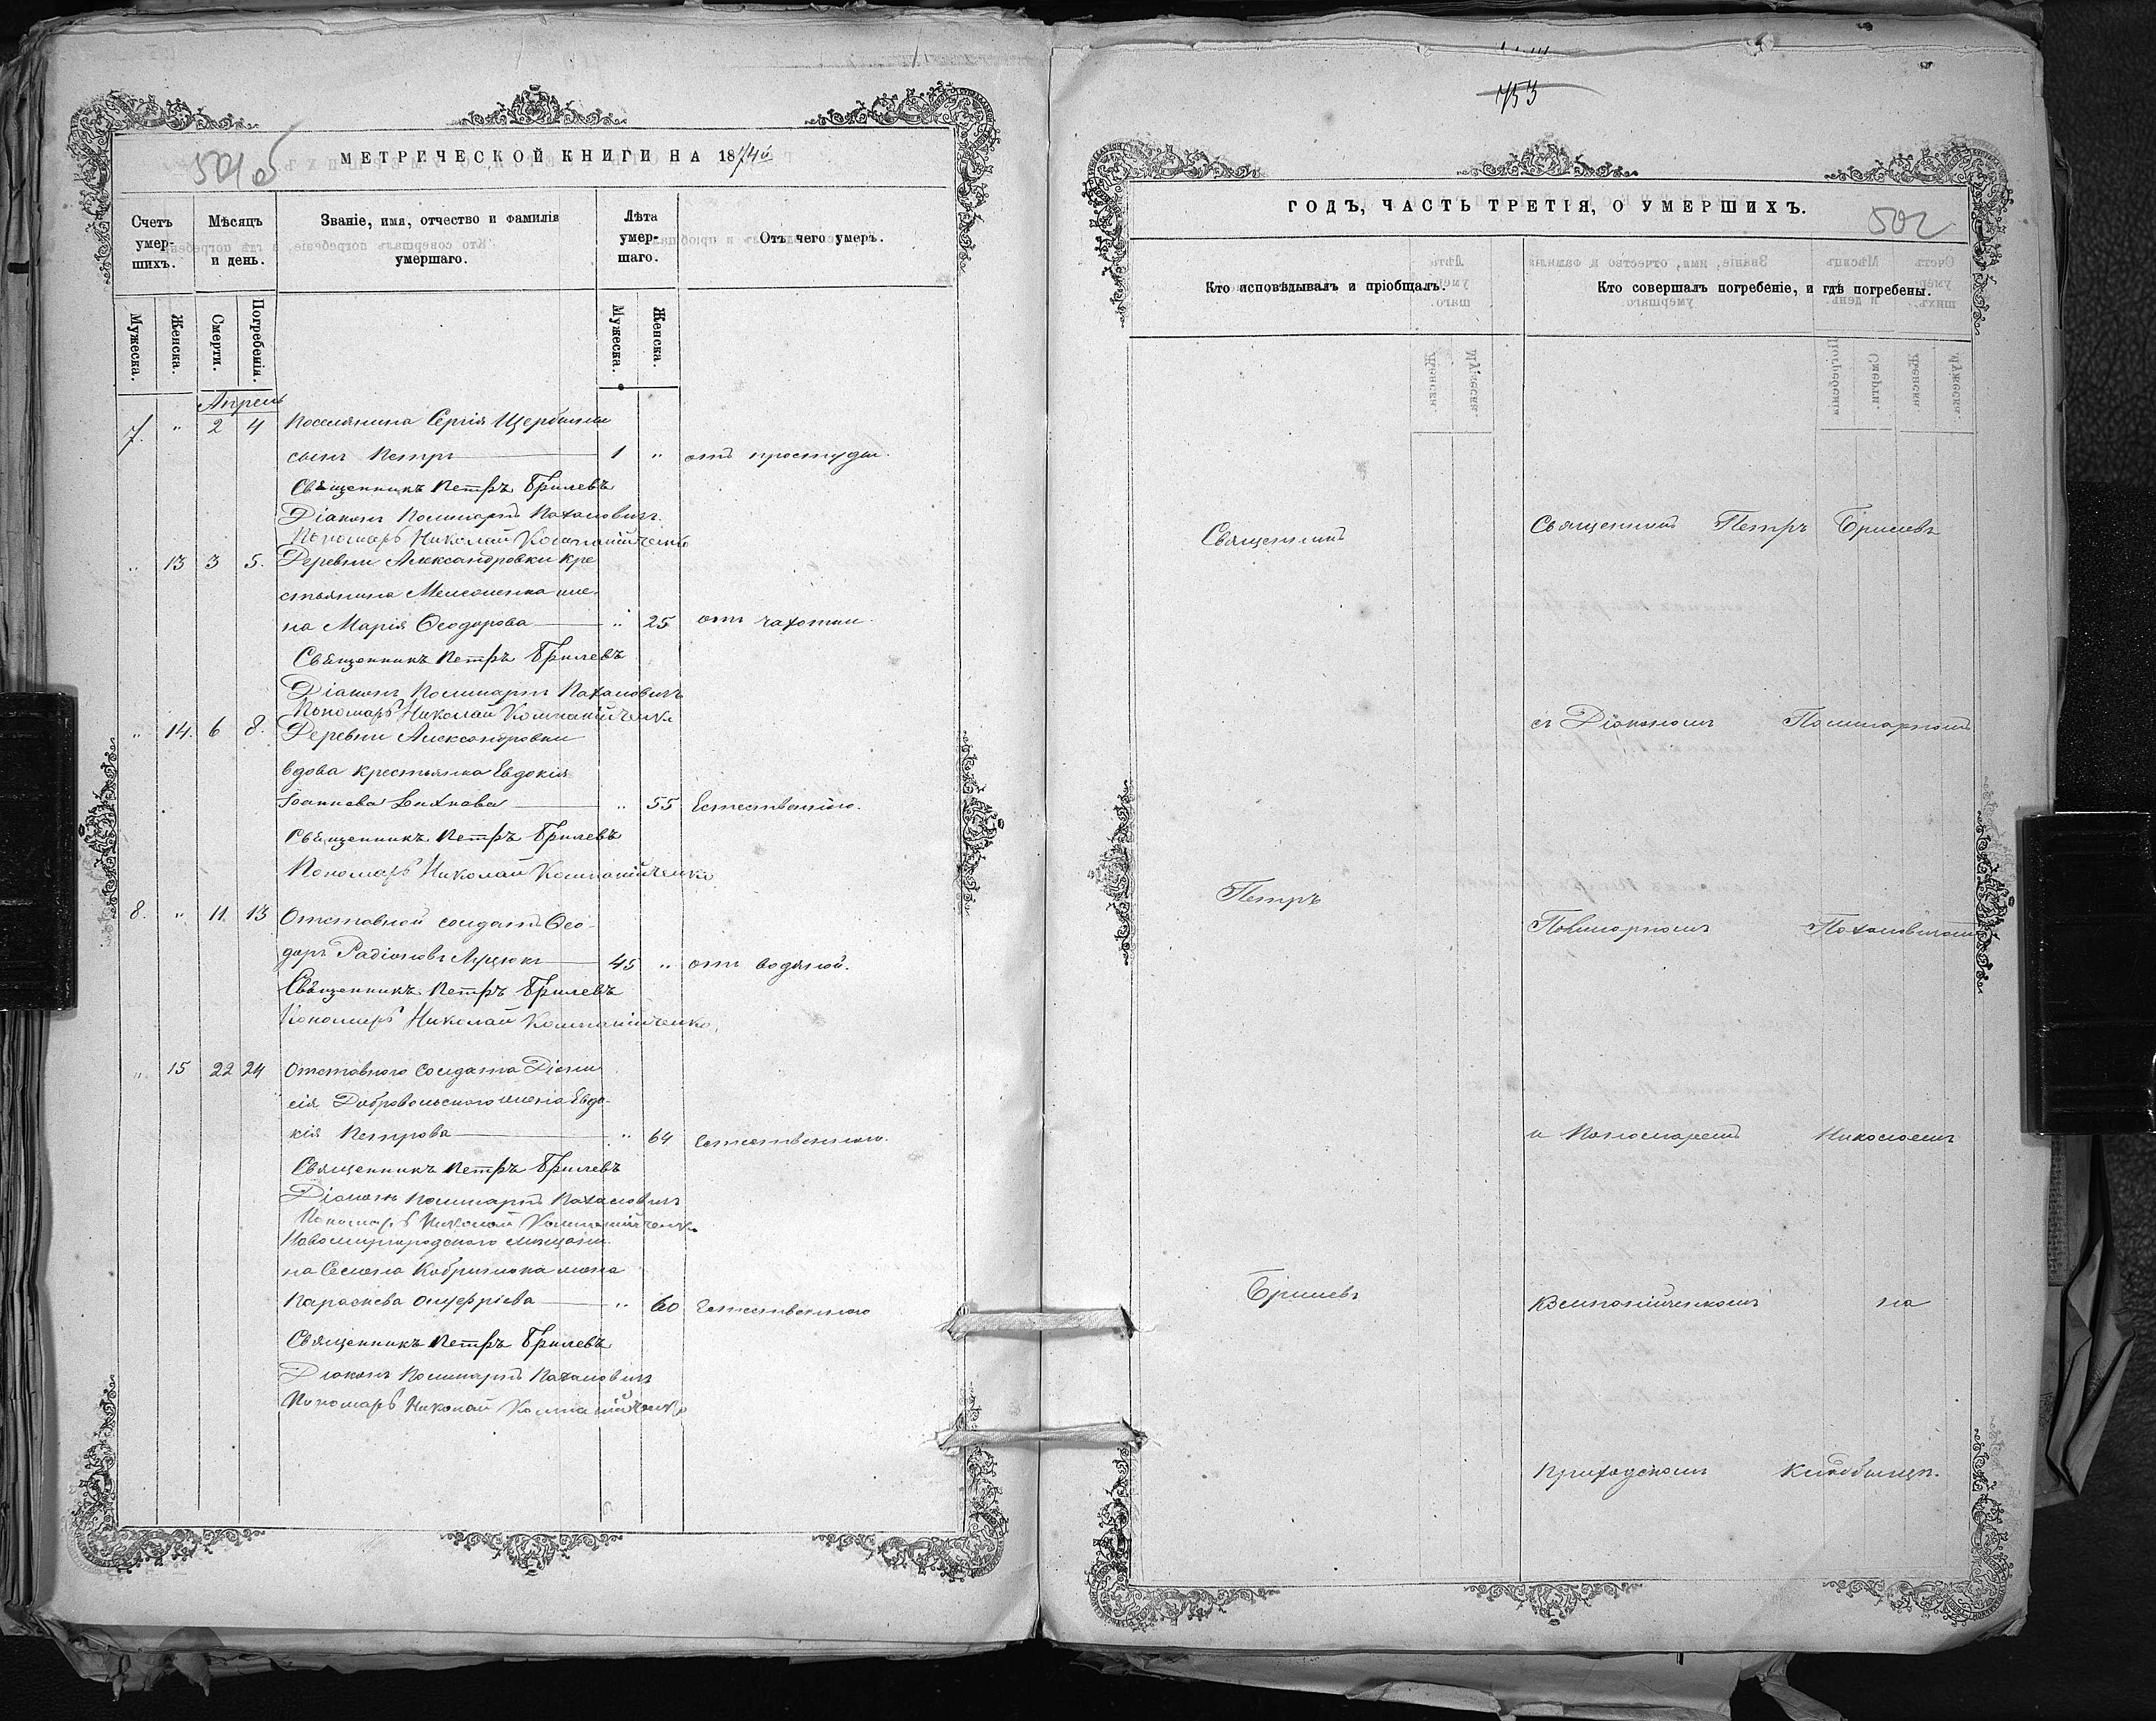 501 об
МЕТРИЧЕСКОЙ КНИГИ НА 1874й
Счетъ умер-шихъ.
Мѣсяцъ и день.
Званіе, имя, отчество и фамилія умершаго.
Лѣта умер-шаго.
Отъ чего умеръ.
Мужеска.
Женска.
Смерти.
Погребенія.
Мужеска.
Женска.
Апрель
7. " 2 4 Поселянина Сергія Щербины
сынъ Петръ 1 " отъ простуды.
Священникъ Петръ Брилевъ
Діаконъ Поликарпъ Пахаловичъ.
Пономарь Николай Компанійченко
" 13 3 5. Деревни Александровки кре
стьянина жена
на Марія Ѳеодорова " 25 отъ чахотки.
Священникъ Петръ Брилевъ
Діаконъ Поликарпъ Пахаловичъ
Пономарь Николай Компанійченко
" 14. 6 8. Деревни Александровки
вдова крестьянка Евдокія
Іоаннова " 55 Естественною.
Священникъ Петръ Брилевъ
Пономарь Николай Компанійченко
8. " 11 13 Отставной солдатъ Ѳео-
доръ Радіоновъ Луцюкъ 45 " отъ водяной.
Священникъ Петръ Брилевъ
Пономарь Николай Компанійченко.
" 15 22 24 Отставного солдата Діони
сія Добровольскаго жена Евдо-
кія Петрова " 64 Естественною.
Священникъ Петръ Брилевъ
Діаконъ Поликарпъ Пахаловичъ
Пономарь Николай Компанійченко
Новомиргородского мещани
на Семена жена
Параскева Онуфріева " 60 Естественною
Священникъ Петръ Брилевъ
Діаконъ Поликарпъ Пахаловичъ
Пономарь Николай Компанійченко
753
ГОДЪ, ЧАСТЬ ТРЕТІЯ, О УМЕРШИХЪ.
502
Кто исповѣдывалъ и пріобщалъ.
Кто совершалъ погребеніе, и гдѣ погребены.
Священникъ
Петръ
Брилевъ
Священникъ Петръ Брилевъ
съ Діакономъ Поликарпомъ
Пахаловичемъ
и Пономаремъ Николаемъ
Компанійченкомъ на
приходскомъ кладбищѣ.